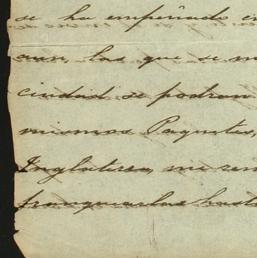 se ha empeñado en
aun, las que se
ciudad se podran
mismos Paquetes,
Inglaterra, me
franquearlas hasta